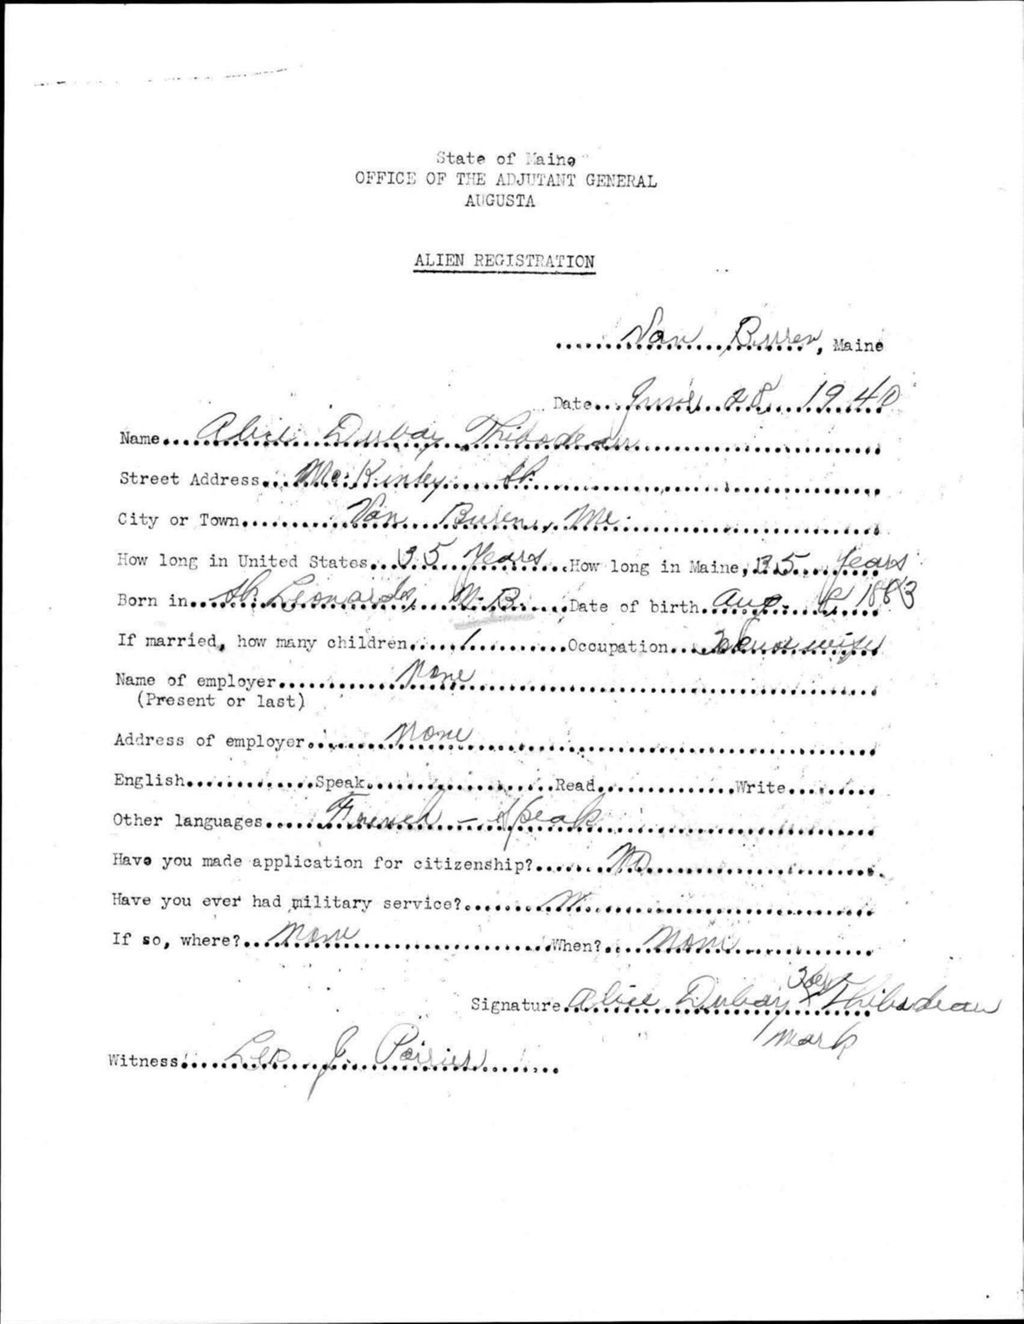 State of Maine
OFFICE OF THE ADJUTANT GENERAL
AUGUSTA
ALIEN REGISTRATION
Van Buren, Maine
Date June 28 1940
Name Alice Dubay Thibodeau
Street Address McKinley St.
City or Town Van Buren, Me.
How long in United States 35 Years How long in Maine 35 Years
Born in St Leonards, N.B. Date of birth Aug. 1883
If married, how many children 1 Occupation House wife
Name of employer None
(Present or last)
Address of employer None
English Speak Read Write
Other languages French - Speak
Have you made application for citizenship? No
Have you ever had military service?
If so, where? None When? None
Signature Alice Dubay Her X Thibodeau
mark
Witness Leo J. Poirier